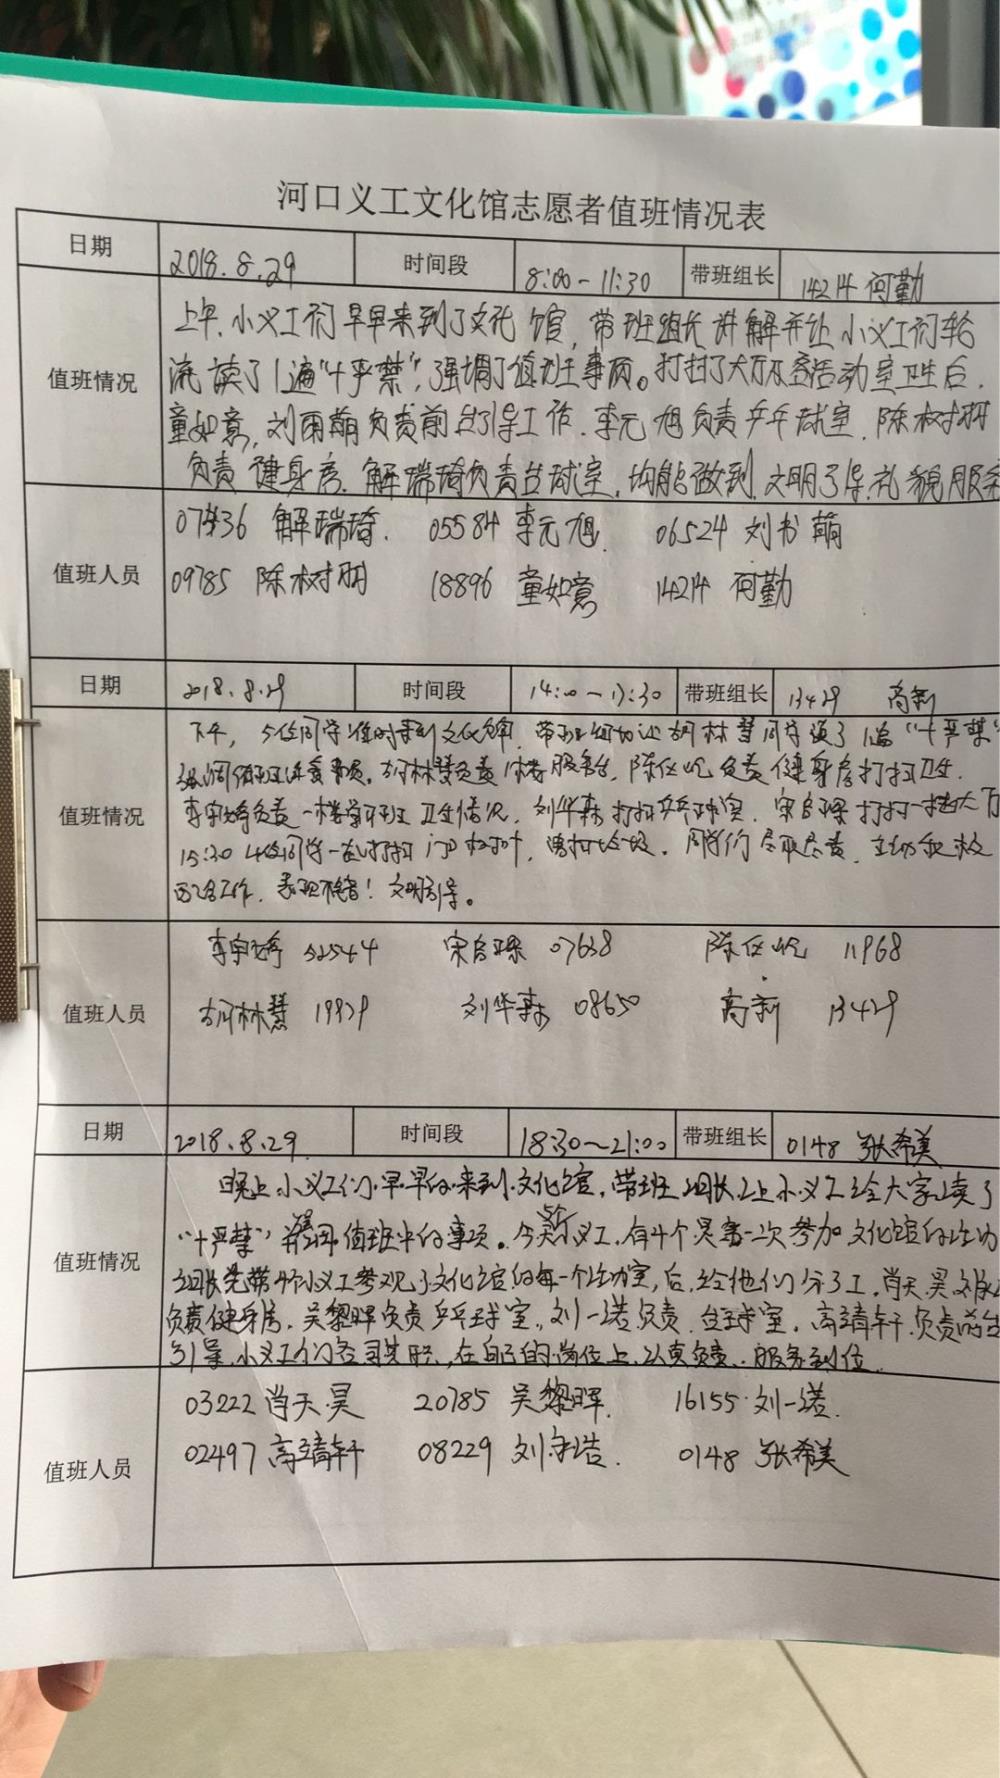 河口义工文化馆志愿者值班情况表
日期 2018.8.29 时间段 8:00-11:30 带班组长 14214 何勤
值班情况
上午,小义工们早早来到了文化馆,带班组长讲解并让小义工们轮
流读了1遍"十严禁",强调了值班事项。打扫了大厅及各活动室卫生后,
童如意,刘雨萌负责前台引导工作.李元旭负责乒乓球室,陈树树
负责健身房.解瑞琦负责台球室,均能做到文明引导,礼貌服务
值班人员
07436 解瑞琦. 05584 李元旭 06524 刘书萌
09785 18896 童如意 14214 何勤
日期 2018.8.29 时间段 14:00-17:30 带班组长 13429 高新
值班情况
下午,5位同学准时来到文化馆,带班组长让胡林慧同学读了1遍"十严禁"
胡林慧负责1楼服务台,陈 负责健身房打扫卫生.
负责一楼 卫生情况,刘华森打扫乒乓球室,宋 打扫一楼大厅
15:30 4位同学一起打扫门口 ,同学们尽职尽责,主动积极
配合工作,表现不错!文明引导。
值班人员
李 宋 07638 陈 11968
胡林慧 刘华森 08650 高新 13429
日期 2018.8.29 时间段 18:30~21:00 带班组长 0148 张希美
值班情况
晚上小义工们早早的来到文化馆,带班组长让小义工给大家读了
"十严禁"并强调值班中的事项。今天 义工,有4个是第一次参加文化馆的活动
组长先带4个小义工参观了文化馆的每一个活动室,后,给他们分了工,肖天昊
负责健身房,吴黎晖负责乒乓球室,刘一诺负责台球室,高靖轩负责前台
引导,小义工们各司其职,在自己的岗位上,认真负责,服务到位.
值班人员
03222 肖天昊 20785 吴黎晖. 16155 刘一诺.
02497 高靖轩 08229 刘宇浩. 0148 张希美